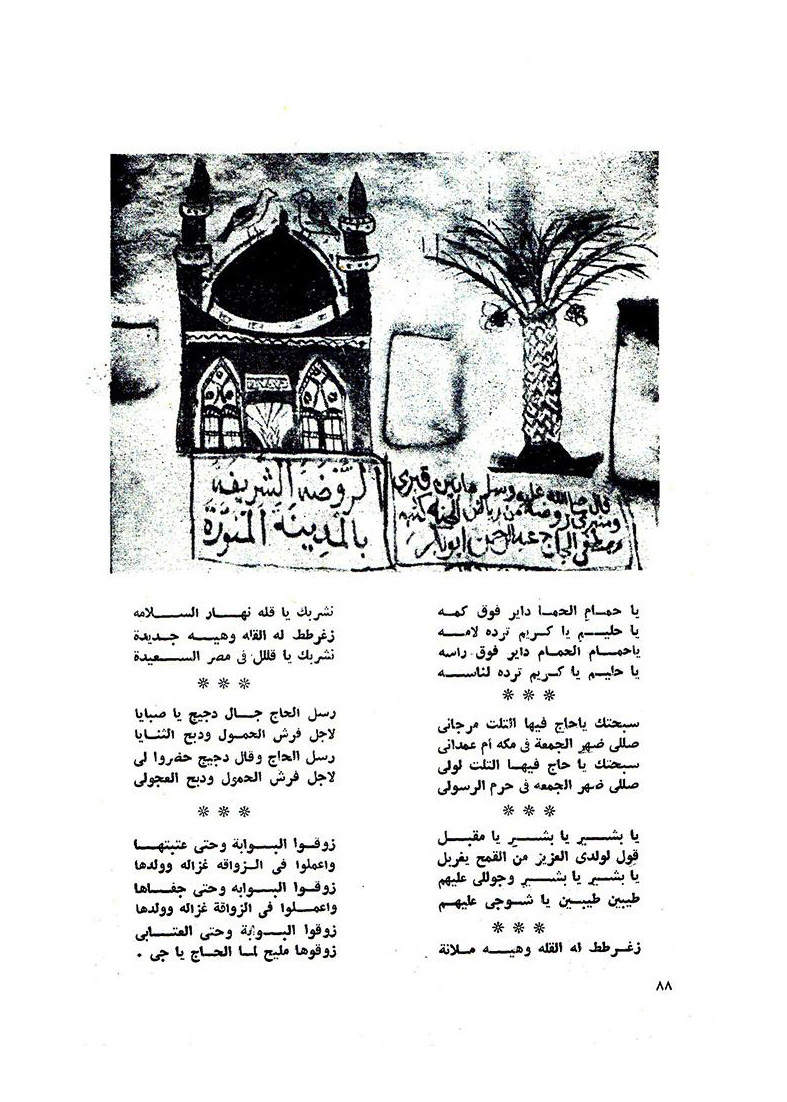 الرَّوْضَة الشَّرِيفة
بالْمَدِينَة الْمُنَوَّرَة
قال صلى الله عليه وسلم ما بين قبرى
ومنبرى روضة من رياض الجنه كتبه
مصطفى الحاج عبدالرحمن ابوبكر
يا حمام الحمـا داير فوق كمه
يا حليـــم يا كــريم ترده لامــه
ياحمــام الحمام داير فوق راسه
يا حليم يا كــريم ترده لناســه
* * *
سبحتك ياحاج فيها التلت مرجانى
صللى ضهر الجمعة فى مكه أم عمدانى
سبحتك يا حاج فيهــا التلت لولى
صللى ضهر الجمعه فى حرم الرسولى
* * *
يا بشـــير يا بشـــير يا مقبــل
قول لولدى العزيز من القمح يغربل
يا بشــير يا بشــير وجوللى عليهم
طيبين طيبــين يا شــوجى عليهــم
* * *
زغـرطط له القله وهيـــه مـلانة
نشربك يا قله نهــار الســـلامه
زغرطط له القله وهيــه جــديدة
نشربك يا قلل فى مصر الســعيدة
* * *
رسل الحاج جــال دجيج يا صبايا
لاجل فرش الحمـول ودبح الثنـايا
رسل الحاج وقال دجيج حضروا لى
لاجل فرش الحمول ودبح العجولى
* * *
زوقـوا البــوابة وحتى عتبتهــا
واعملوا فى الــزواقه غزاله وولدها
زوقــوا البــوابه وحتى جفــاها
واعمـلوا فى الزواقة غزاله وولدها
زوقوا البــوابة وحتى العتـــابى
زوقوها مليح لمـا الحـاج يا جى .
٨٨